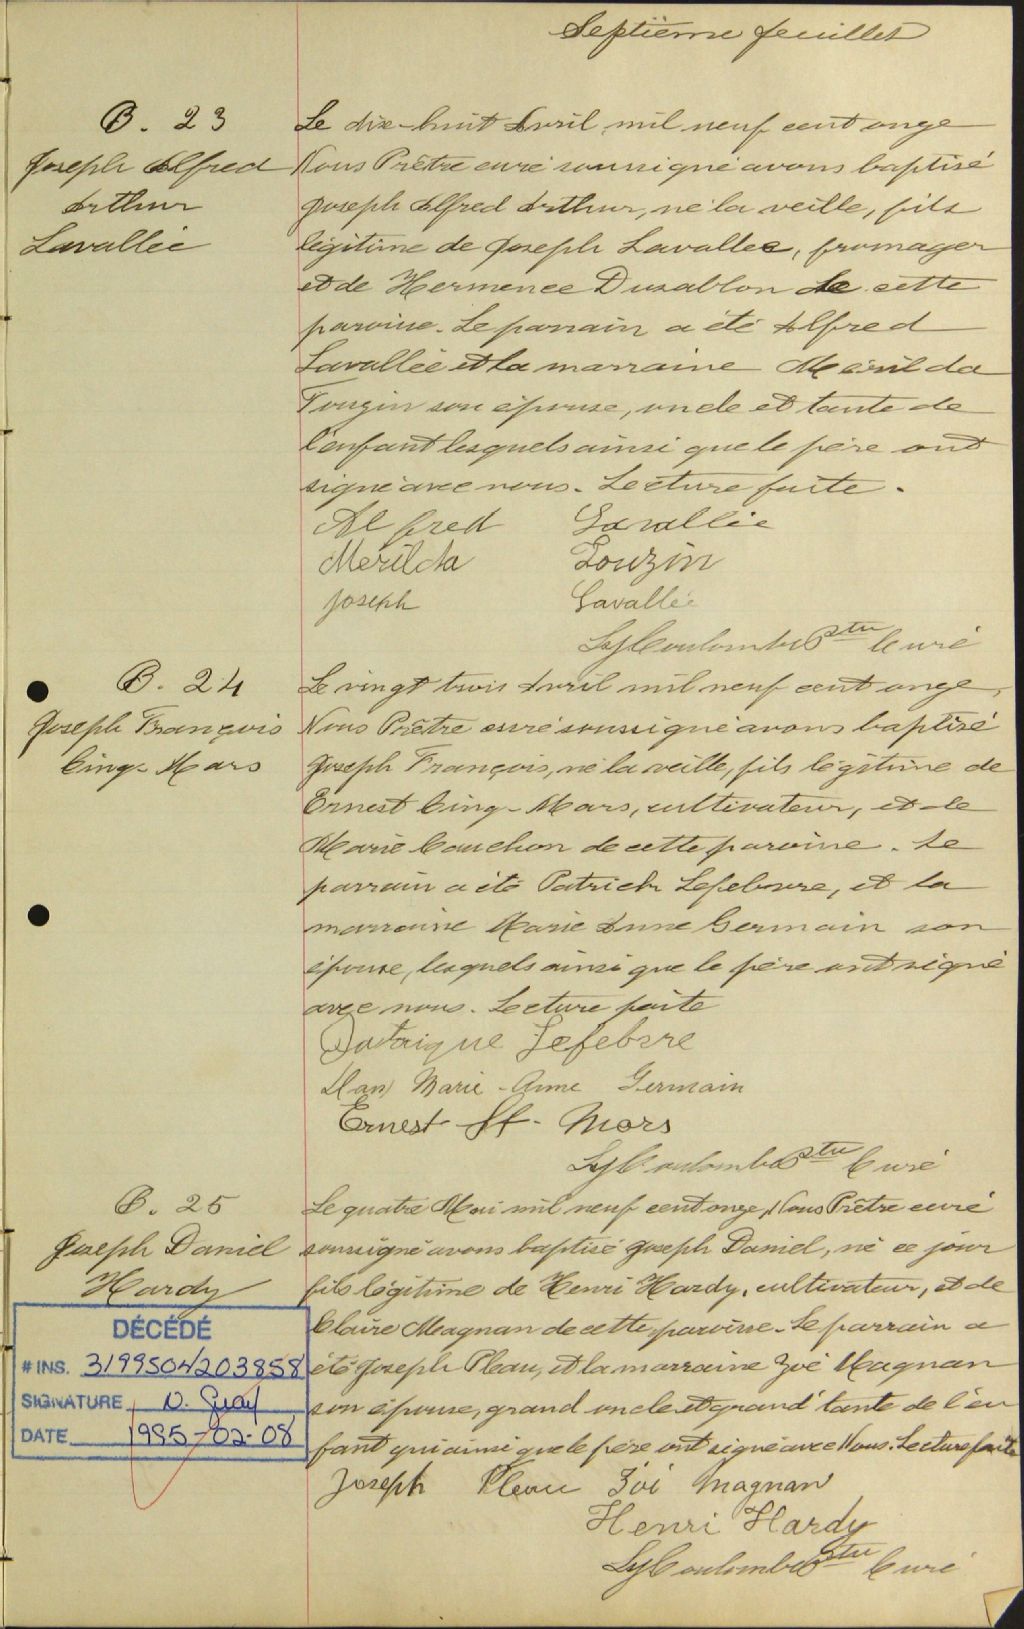 Septième feuillet
B. 23
Joseph Alfred
Arthur
Lavallée
Le dix-huit Avril mil neuf cent onze
Nous Prêtre curé soussigné avons baptisé
Joseph Alfred Arthur, né la veille, fils
légitime de Joseph Lavallee, fromager
et de Hermence Dusablon de cette
paroisse. Le parrain a été Alfred
Lavallée et la marraine Mérilda
Touzin son épouse, oncle et tante de
l'enfant lesquels ainsi que le père ont
signé avec nous. Lecture faite.
Alfred Lavallée
Merilda Touzin
Joseph Lavallée
Coulombe Ptre Curé
B. 24
Joseph François
Cinq-Mars
Le vingt trois Avril mil neuf cent onze,
Nous Prêtre curé soussigné avons baptisé
Joseph François, né la veille, fils légitime de
Ernest Cinq-Mars, cultivateur, et de
Marie Cauchon de cette paroisse. Le
parrain a été Patrick Lefebvre, et la
marraine Marie Anne Germain son
épouse, lesquels ainsi que le père ont signé
avec nous. Lecture faite
Patrique Lefebvre
Marie-Anne Germain
Ernest St-Mars
Coulombe Ptre Curé
B. 25
Joseph Daniel
Hardy
Le quatre Mai mil neuf cent onze, Nous Prêtre curé
soussigné avons baptisé Joseph Daniel, né ce jour
fils légitime de Henri Hardy, cultivateur, et de
Claire Magnan de cette paroisse. Le parrain a
été Joseph Pleau, et la marraine Zoé Magnan
son épouse, grand oncle et grand'tante de l'en
fant qui ainsi que le père ont signé avec Nous. Lecture faite
DÉCÉDÉ
# INS. 3199504203858
SIGNATURE
DATE 1995-02-08
Joseph Pleau Zoé Magnan
Henri Hardy
Coulombe Ptre Curé